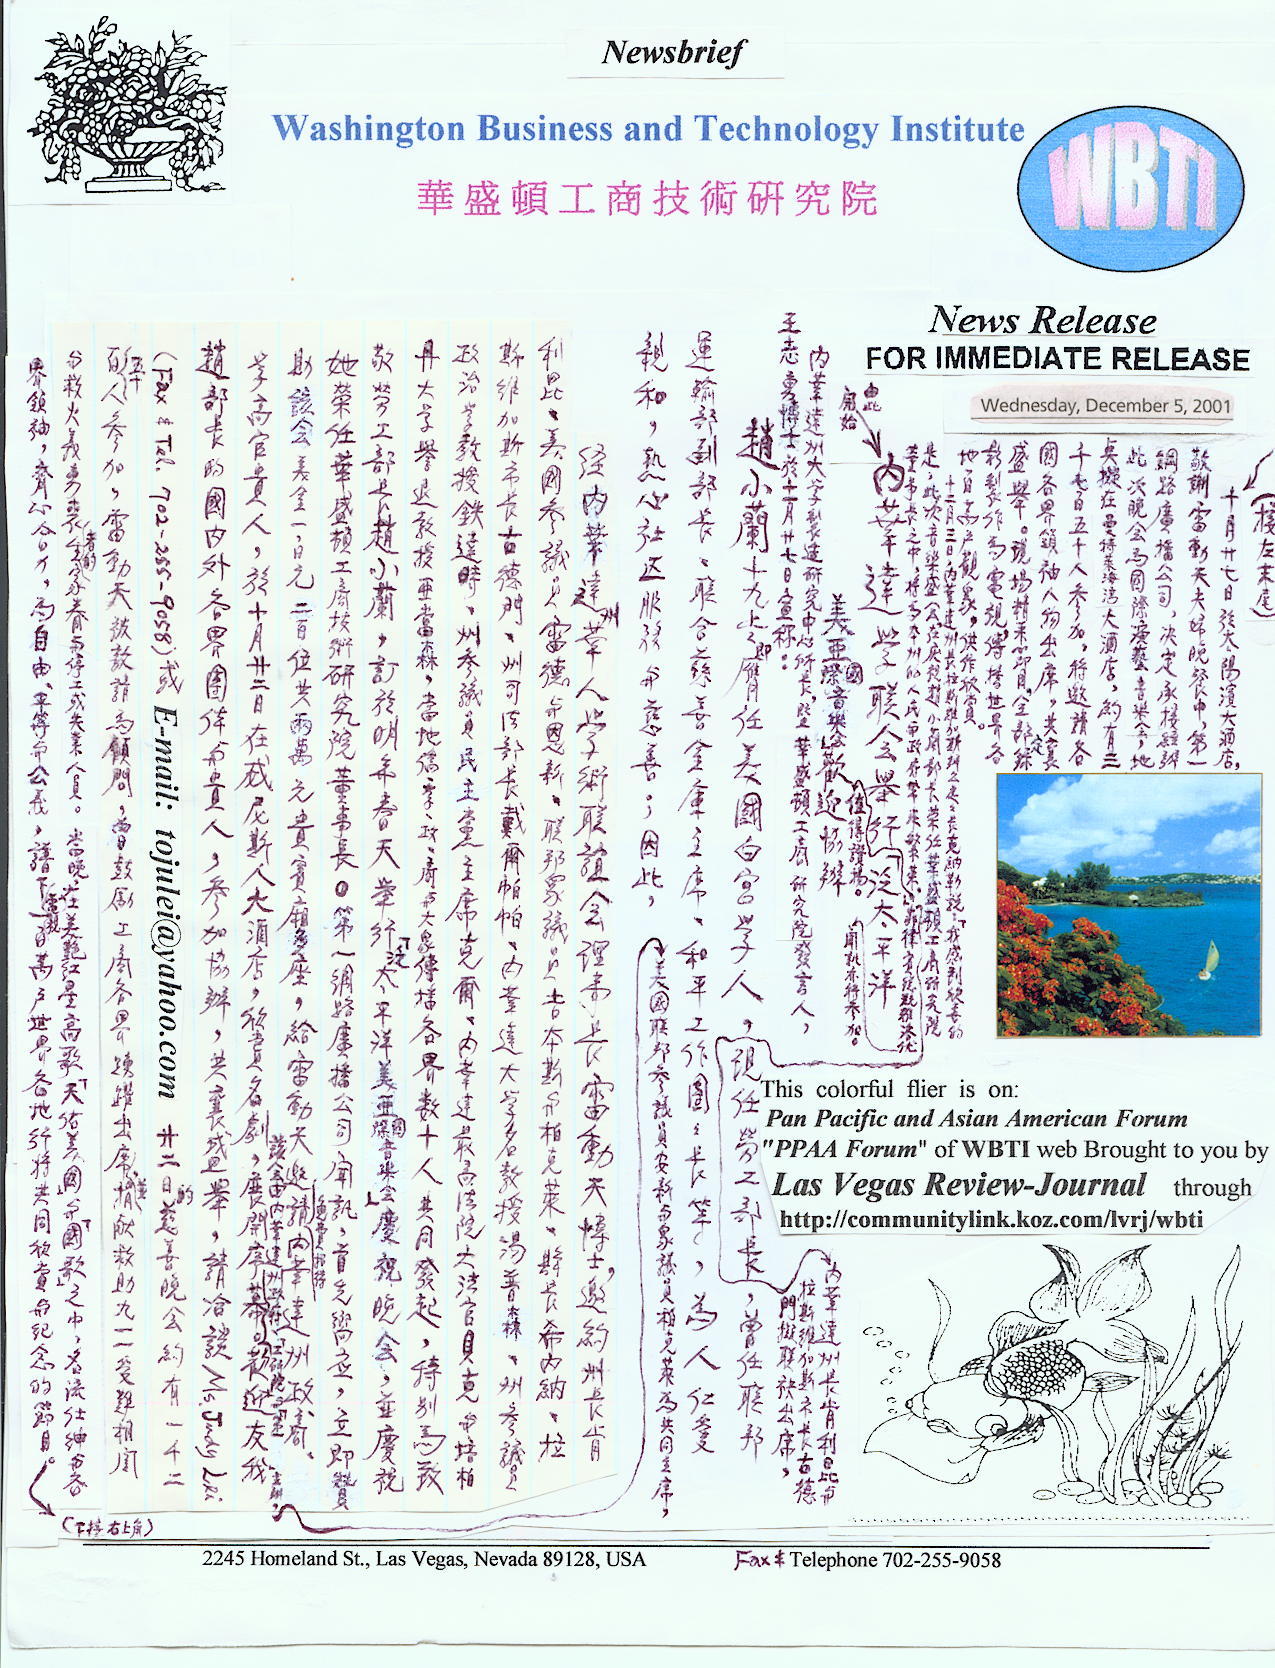 Newsbrief
Washington Business and Technology Institute
華盛頓工商技術研究院
WBTI
News Release
FOR IMMEDIATE RELEASE
Wednesday, December 5, 2001
由此開始
內華達學聯會舉行「泛太平洋
美亞國際音樂會」歡迎協辦
值得讚揚。
內華達州大學製造研究中心所長暨華盛頓工商研究院發言人，
王志勇博士於十一月廿七日宣稱：
趙小蘭十九歲即膺任美國白宮學人，現任勞工部長，曾任聯邦
運輸部副部長、聯合慈善金庫主席、和平工作團團長等，為人仁愛
親和，熱心社區服務與慈善，因此，
美國聯邦參議員安新與眾議員柏克萊為共同主席，
內華達州長肯利昆與
拉斯維加斯市長古德
門擬聯袂出席，
經內華達州華人學術聯誼會理事長雷動天博士，邀約州長肯
利昆、美國參議員雷德與恩新、聯邦眾議員吉本斯與柏克萊、縣長希內納、拉
斯維加斯市長古德門、州司法部長戴爾帕帕、內華達大學名教授湯普森、州參議員
政治學教授鉄達時、州參議員民主黨主席克爾、內華達最高法院大法官貝克與培柏
丹大學譽退教授亞當森，當地儒、學、政、商與大眾傳播各界數十人共同發起，特別為致
敬勞工部長趙小蘭，訂於明年春天舉行「泛太平洋美亞國際音樂會」慶祝晚會，並慶祝
她榮任華盛頓工商技術研究院董事長。第一網路廣播公司聞訊，首先響應，立即贊
助該會美金一百元二百位共兩萬元貴賓廂座，給雷動天邀請內華達州政商
學高官貴人，於十月廿二日在威尼斯人大酒店，欣賞名劇，展開序幕。歡迎友我
趙部長的國內外各界團体與貴人，參加協辦，共襄盛舉，請洽談Ms. Judy Lei
(Fax & Tel. 702-255-9058)或 E-mail: tojulei@yahoo.com 廿二日的慈善晚会約有一千二
百五十人參加，雷動天被敦請為顧問，曾鼓勵工商各界踴躍出席捐獻救助九一一受難相關
與救火義勇喪生者的家眷與停工或失業人員。當晚在美艷紅星高歌「天佑美國」與「國歌」之中，名流仕紳與各
界領袖，齊心合力，為自由、平等與公義，譜百萬戶世界各地行將共同欣賞與紀念的節目。
(下接右上角)
(接左末尾)
十月廿七日於太陽濱大酒店，
敬謝雷動天夫婦晚餐中，第一
網路廣播公司，決定承接經辦
此次晚会為國際演藝音樂会，地
點擬在曼特萊海濱大酒店，約有三
千七百五十人參加，將邀請各
國各界領袖人物出席，共襄
盛舉。現場精采節目，全部錄
影製作為電視，傳播世界各
地百萬戶觀眾，供作欣賞。
This colorful flier is on:
Pan Pacific and Asian American Forum
"PPAA Forum" of WBTI web Brought to you by
Las Vegas Review-Journal through
http://communitylink.koz.com/lvrj/wbti
2245 Homeland St., Las Vegas, Nevada 89128, USA Fax & Telephone 702-255-9058